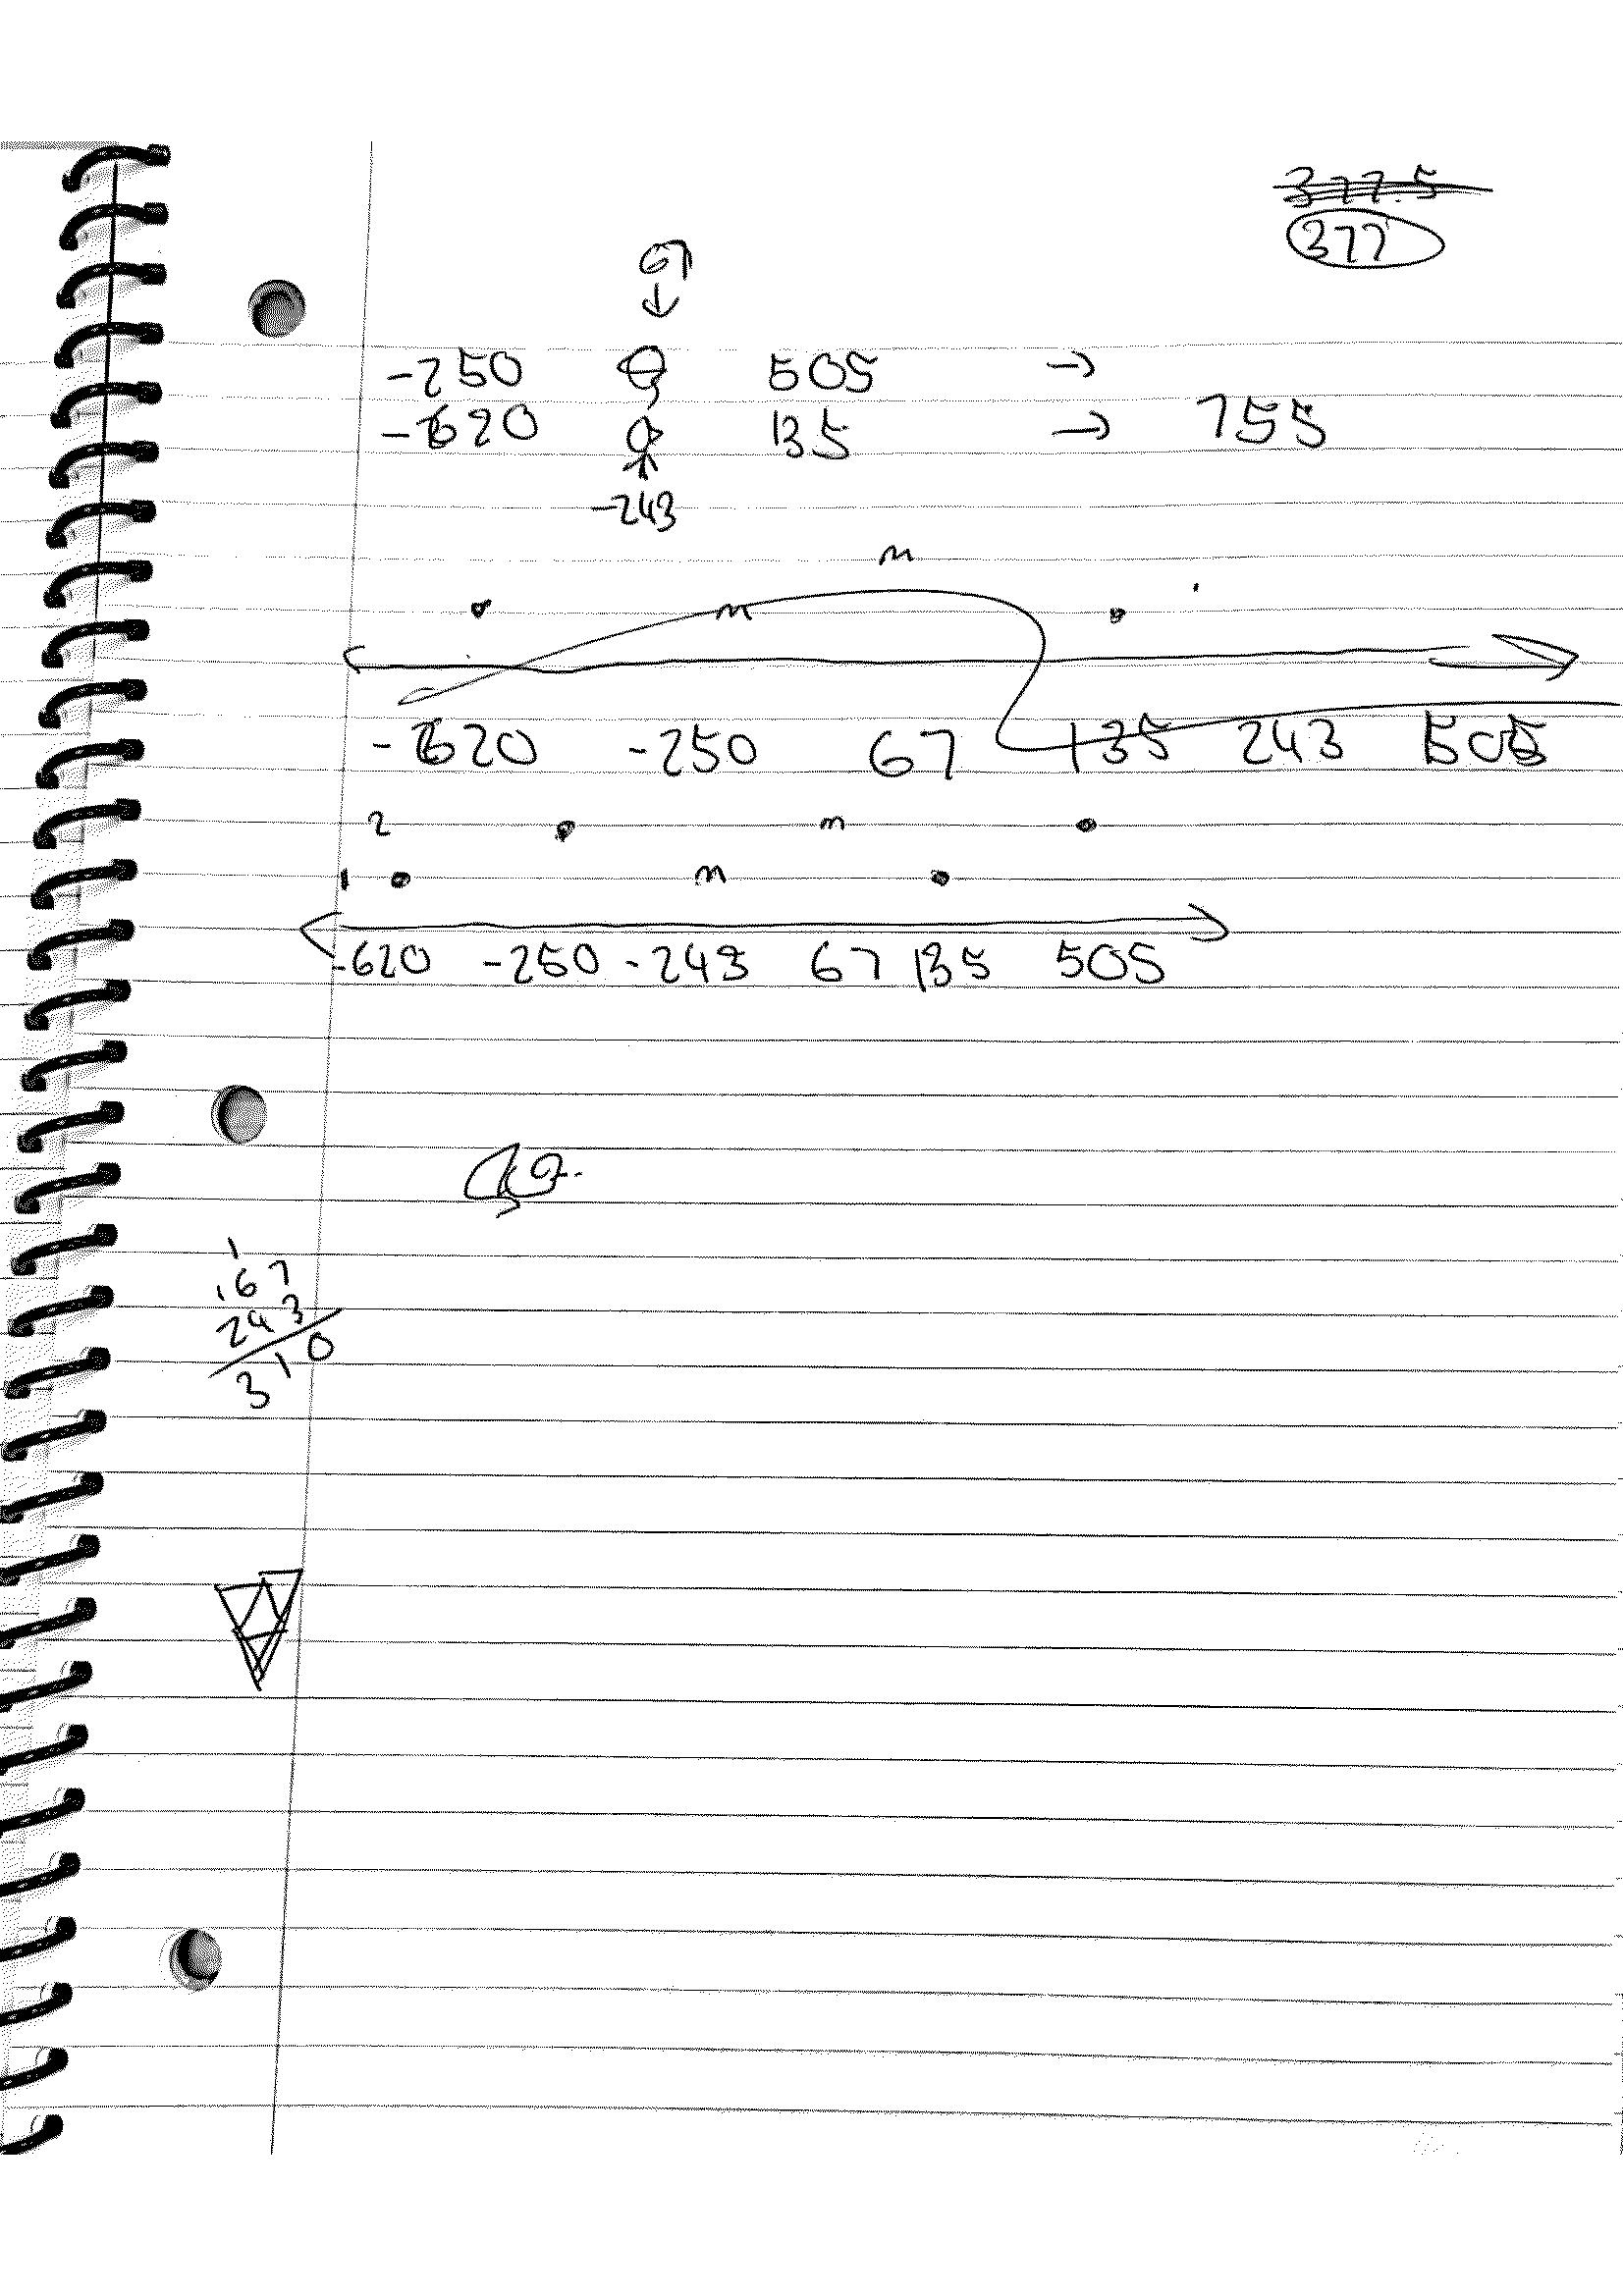 377.5
377
67
↓
-250 505 →
-620 135 → 755
-243
m
m
-620 -250 67 135 243 505
2 m
1 m
-620 -250 -243 67 135 505
1
67
243
310